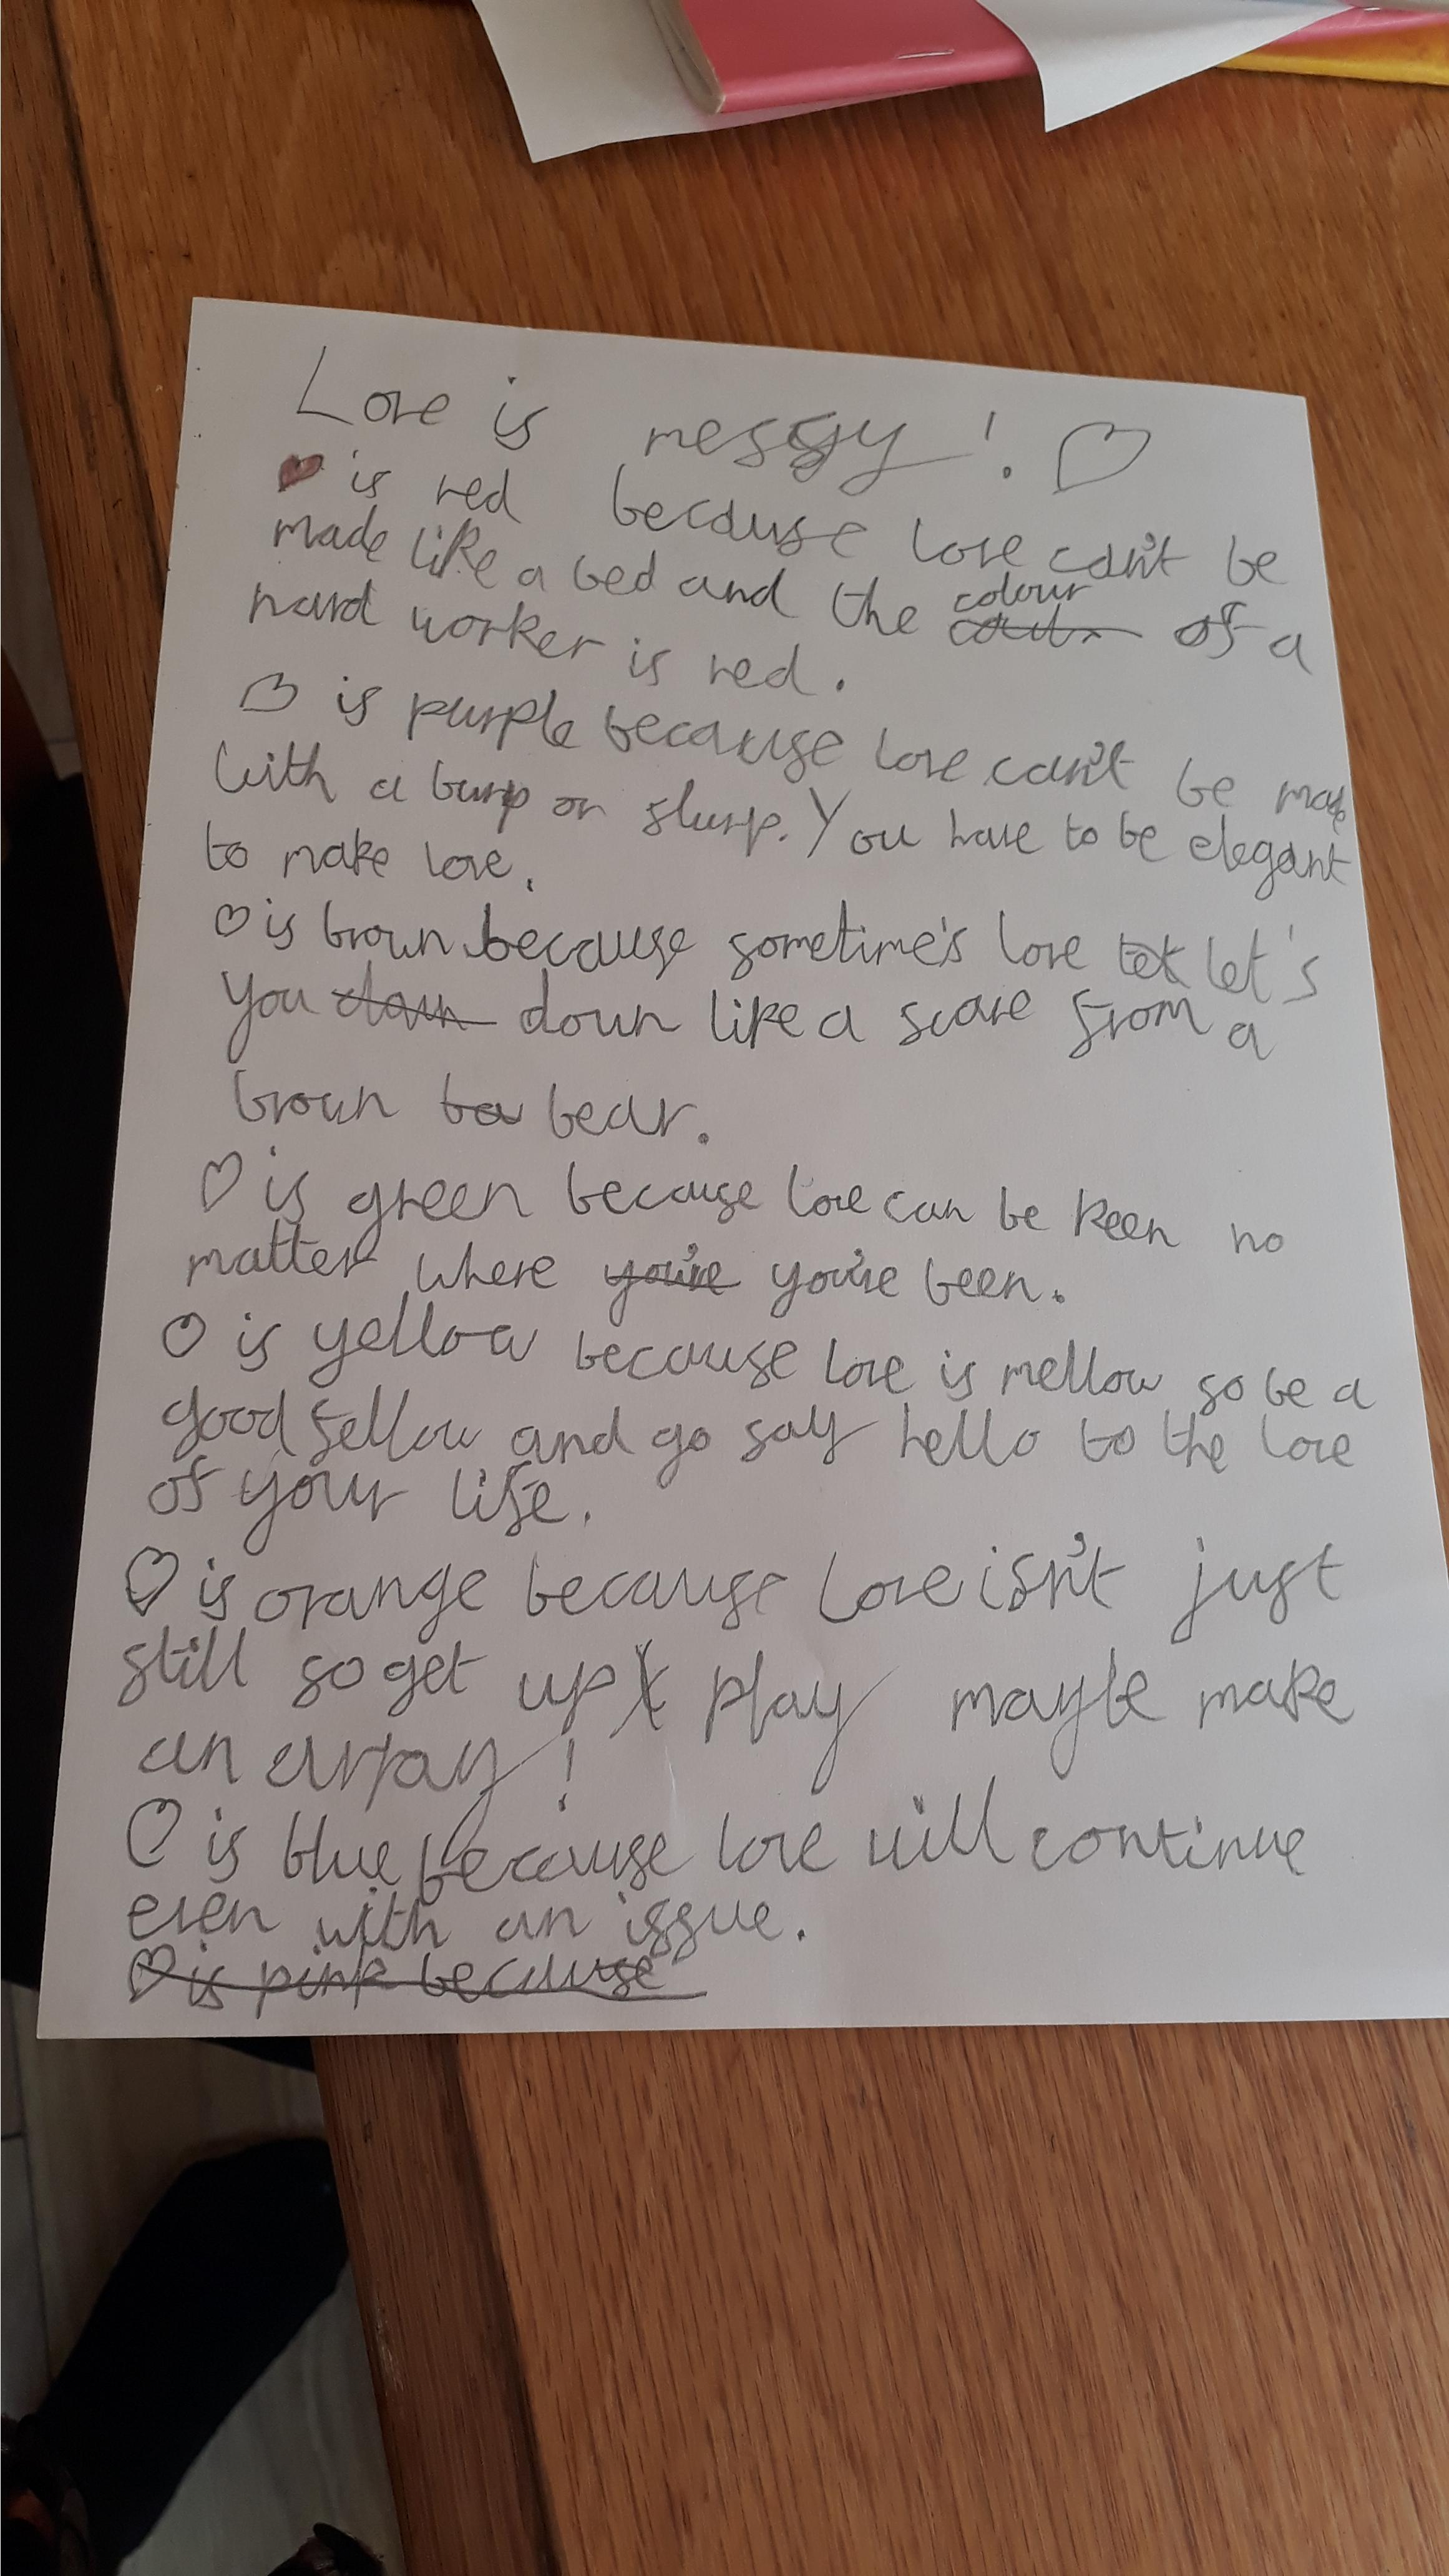 Love is messy! ♡
♥ is red because love can't be
made like a bed and the colour of a
hard worker is red.
♡ is purple because love can't be made
with a burp or slurp. You have to be elegant
to make love.
♡ is brown because sometime's love let's
you down like a scare from a
brown bear.
♡ is green because love can be keen no
matter where you've been.
♡ is yellow because love is mellow so be a
good fellow and go say hello to the love
of your life.
♡ is orange because love isn't just
still so get up play maybe make
an array!
♡ is blue because love will continue
even with an issue.
♡ is pink because